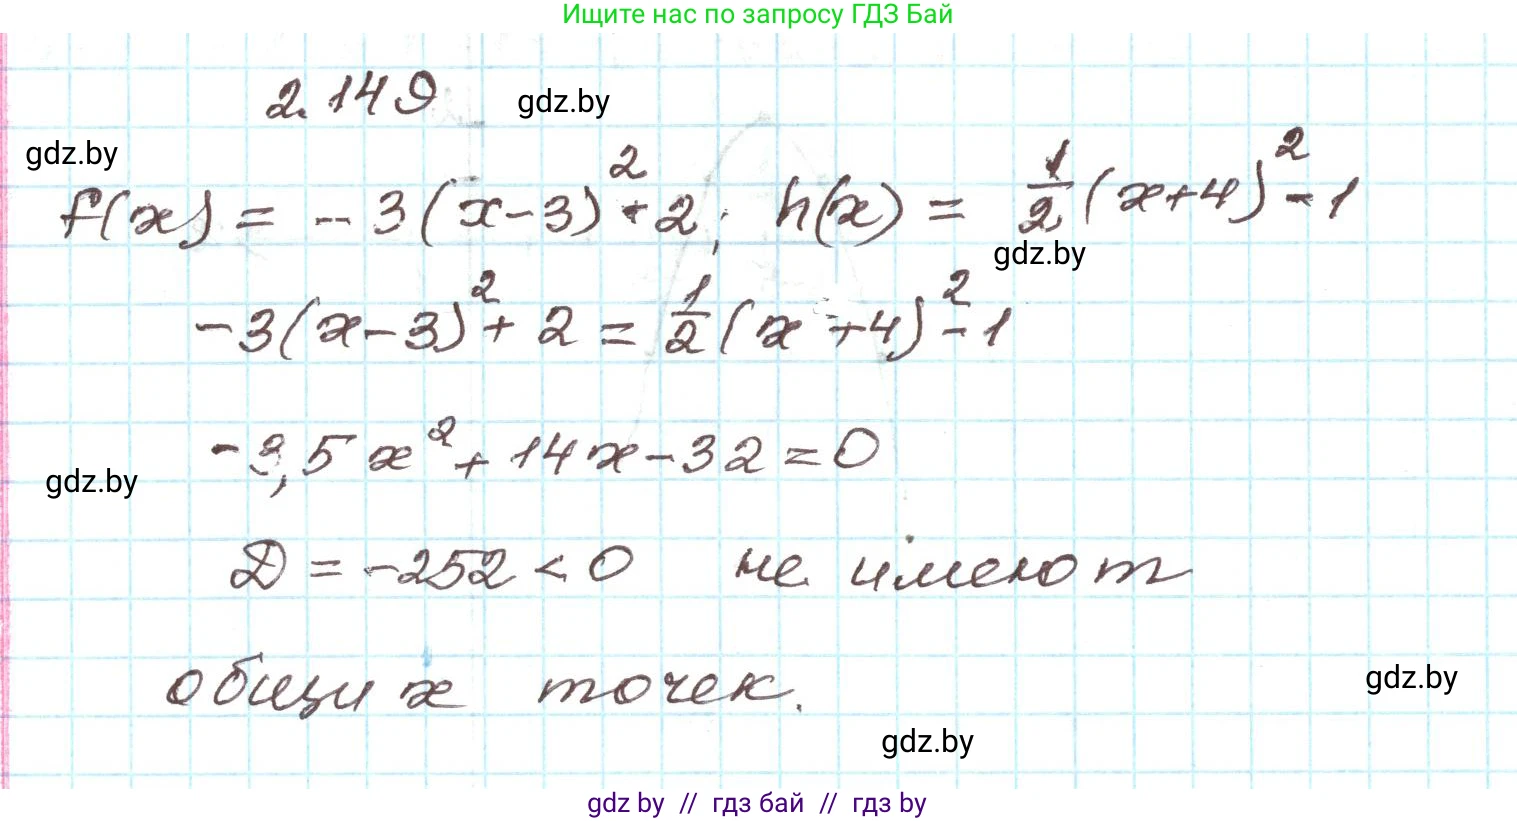 Ищите нас по запросу ГДЗ Бай
2.149
gdz.by
gdz.by
f(x) = -3(x-3)² + 2; h(x) = 1/2(x+4)² - 1
gdz.by
-3(x-3)² + 2 = 1/2(x+4)² - 1
-3,5x² + 14x - 32 = 0
gdz.by
D = -252 < 0 не имеют
общих точек.
gdz.by
gdz.by
gdz by // гдз бай // гдз by